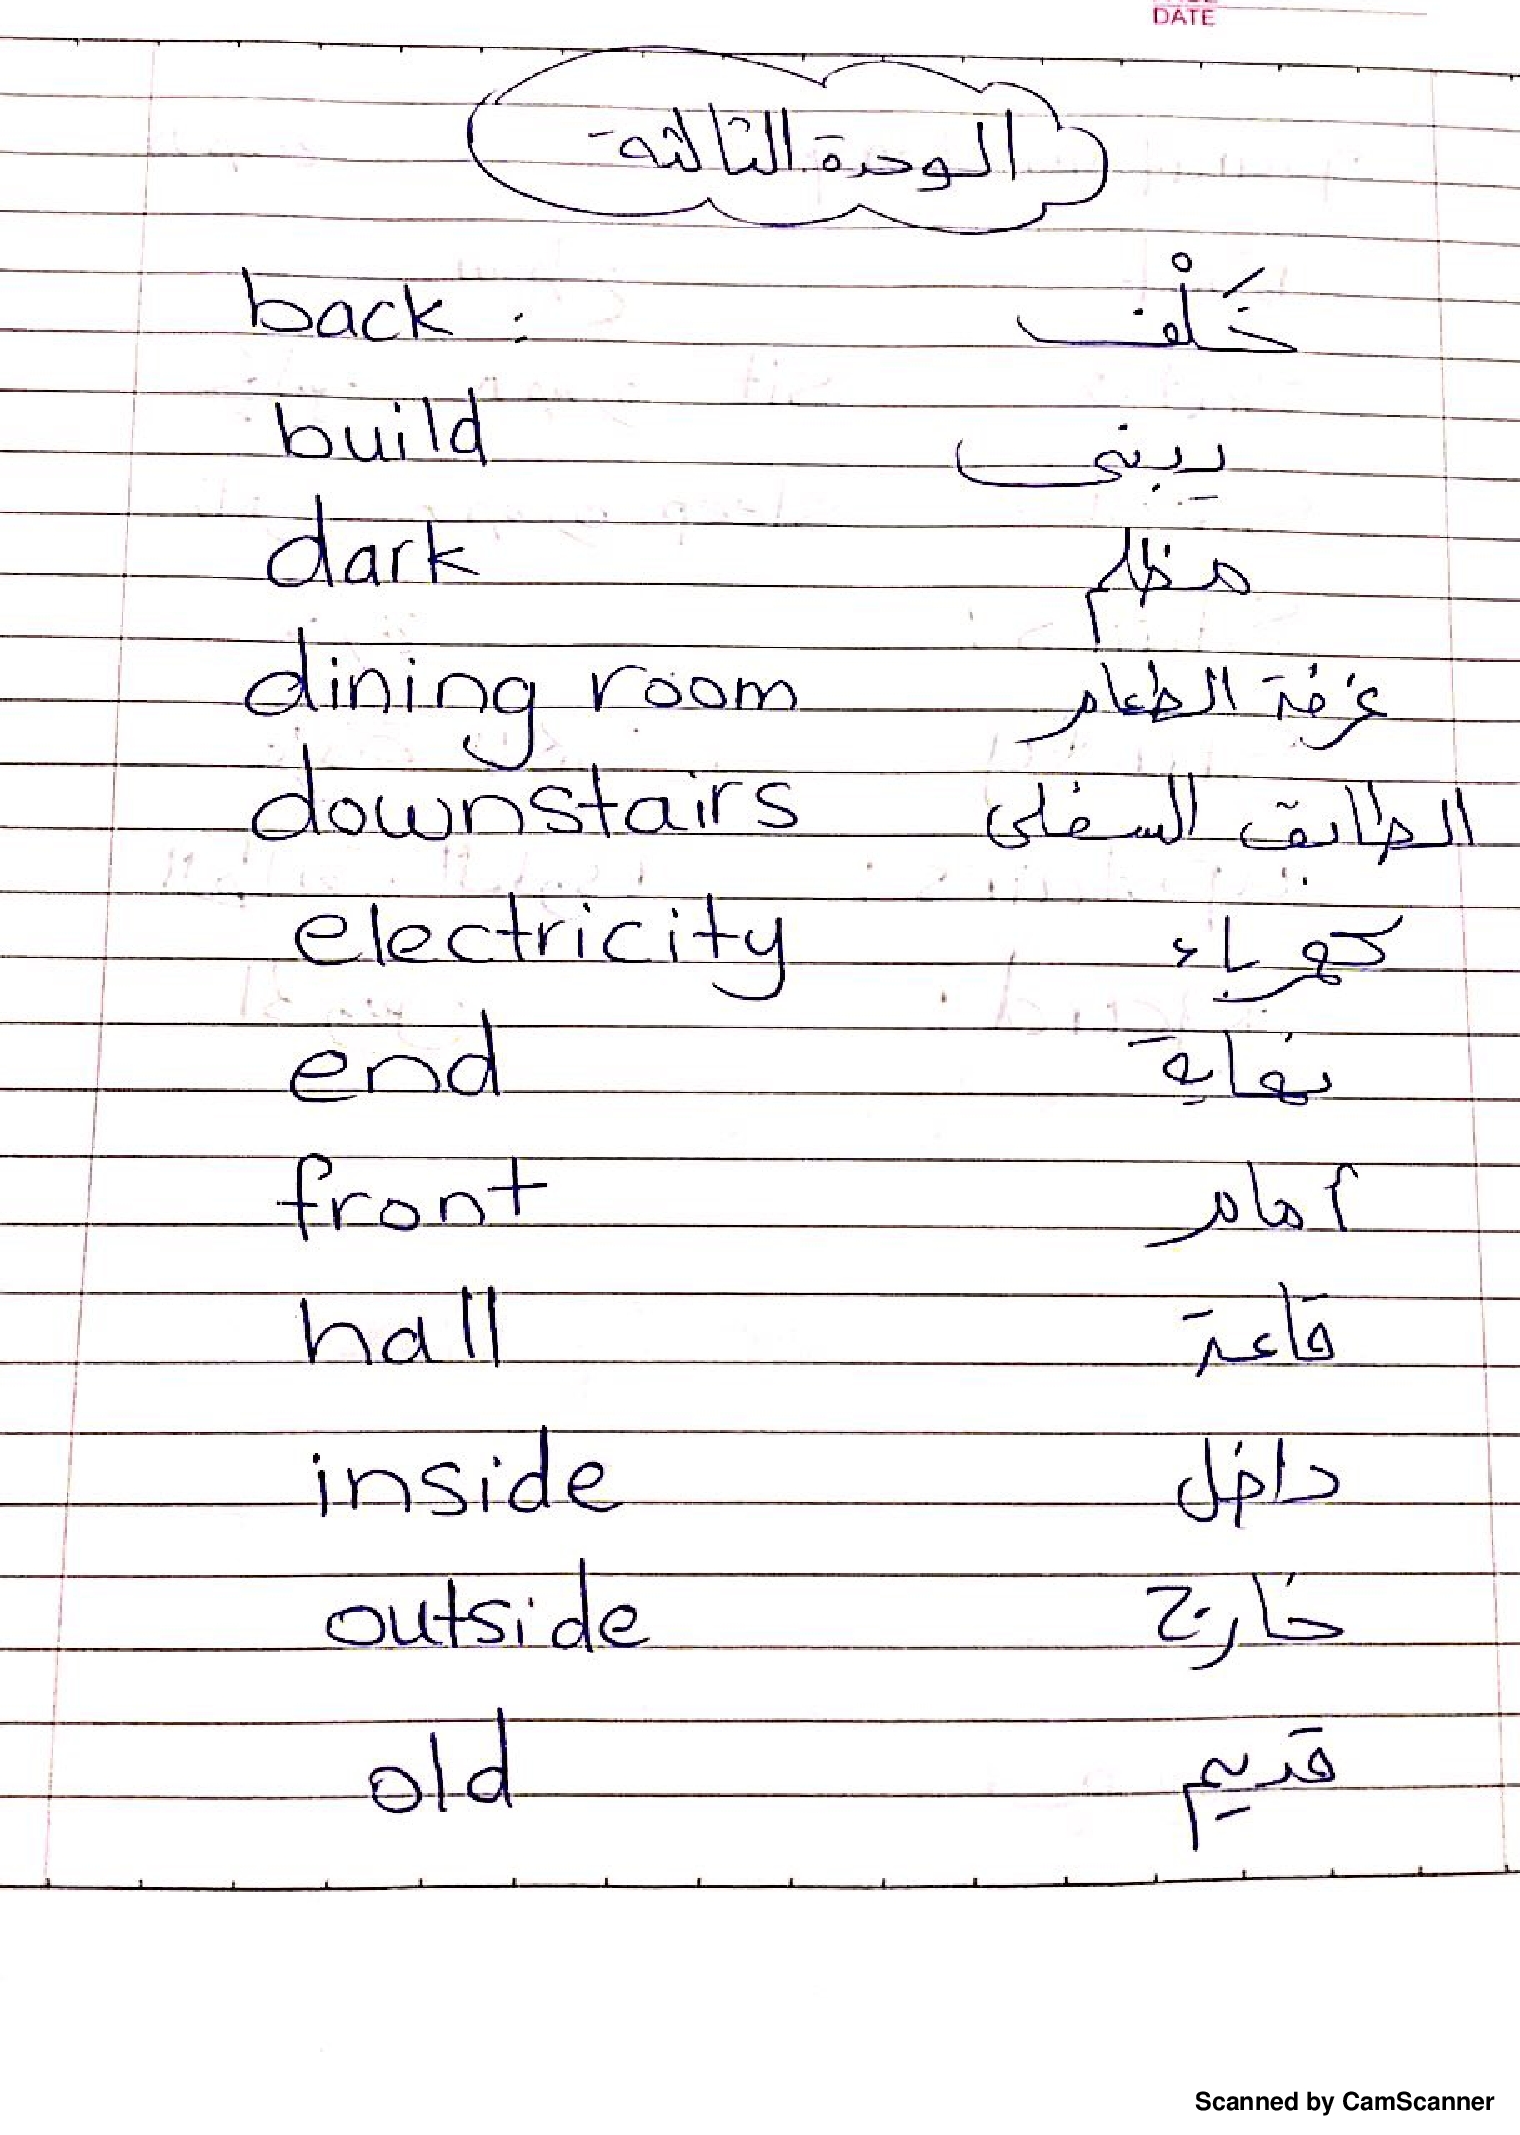 DATE
الوحدة الثالثة
back : خَلْف
build يبنى
dark مظلم
dining room غرفة الطعام
downstairs الطابق السفلى
electricity كهرباء
end نهاية
front أمام
hall قاعة
inside داخل
outside خارج
old قديم
Scanned by CamScanner